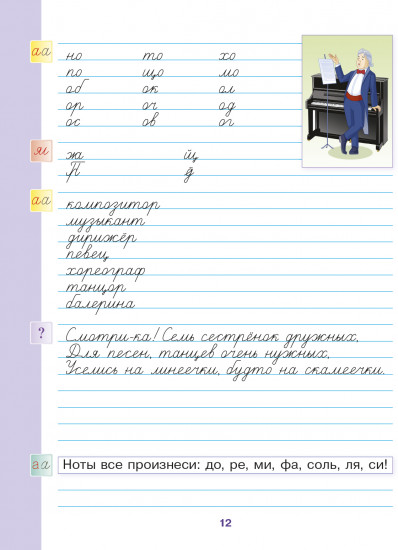 аа но то хо
по що мо
об ок ол
ор оч од
ос ов ог
аа композитор
музыкант
дирижёр
певец
хореограф
танцор
балерина
? Смотри-ка! Семь сестрёнок дружных,
Для песен, танцев очень нужных,
Уселись на линеечки, будто на скамеечки.
аа Ноты все произнеси: до, ре, ми, фа, соль, ля, си!
12